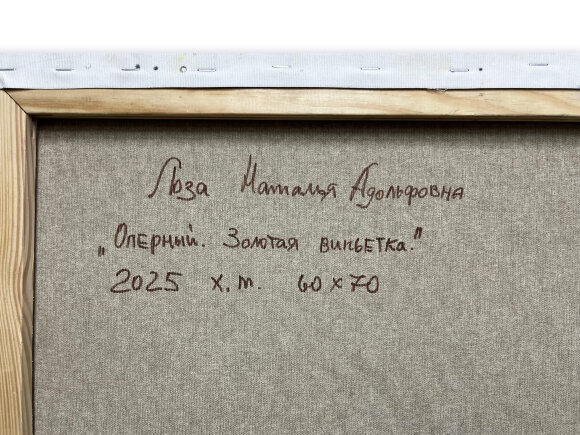 Лоза Наталия Адольфовна
„Оперный. Золотая виньетка."
2025 х.т. 60х70